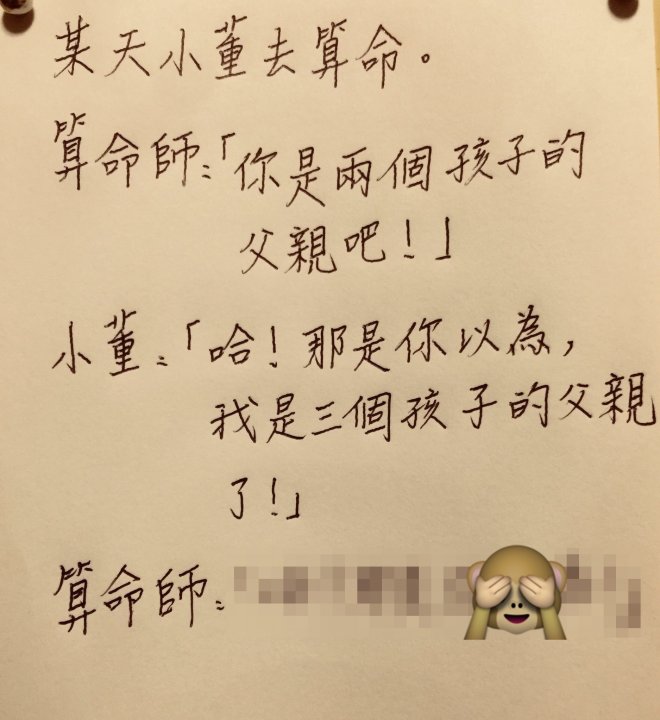 某天小董去算命。
算命師:「你是兩個孩子的
父親吧!」
小董:「哈!那是你以為,
我是三個孩子的父親
了!」
算命師: